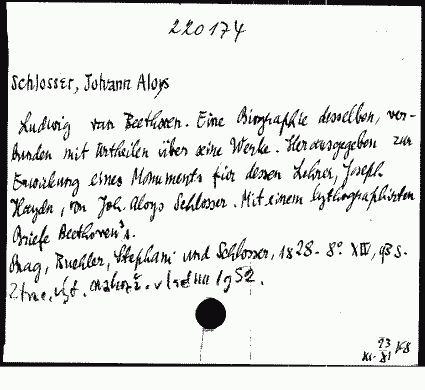 220174
Schlosser, Johann Aloys
Ludwig van Beethoven. Eine Biographie desselben, ver-
bunden mit Urtheilen über seine Werke. Herausgegeben zur
Erwirkung eines Monuments für dessen Lehrer, Joseph
Haydn, von Joh. Aloys Schlosser. Mit einem lythographirten
Briefe Beethoven's.
Prag, Buchler, Stephani und Schlosser, 1828. 8° XIV, 93 S.